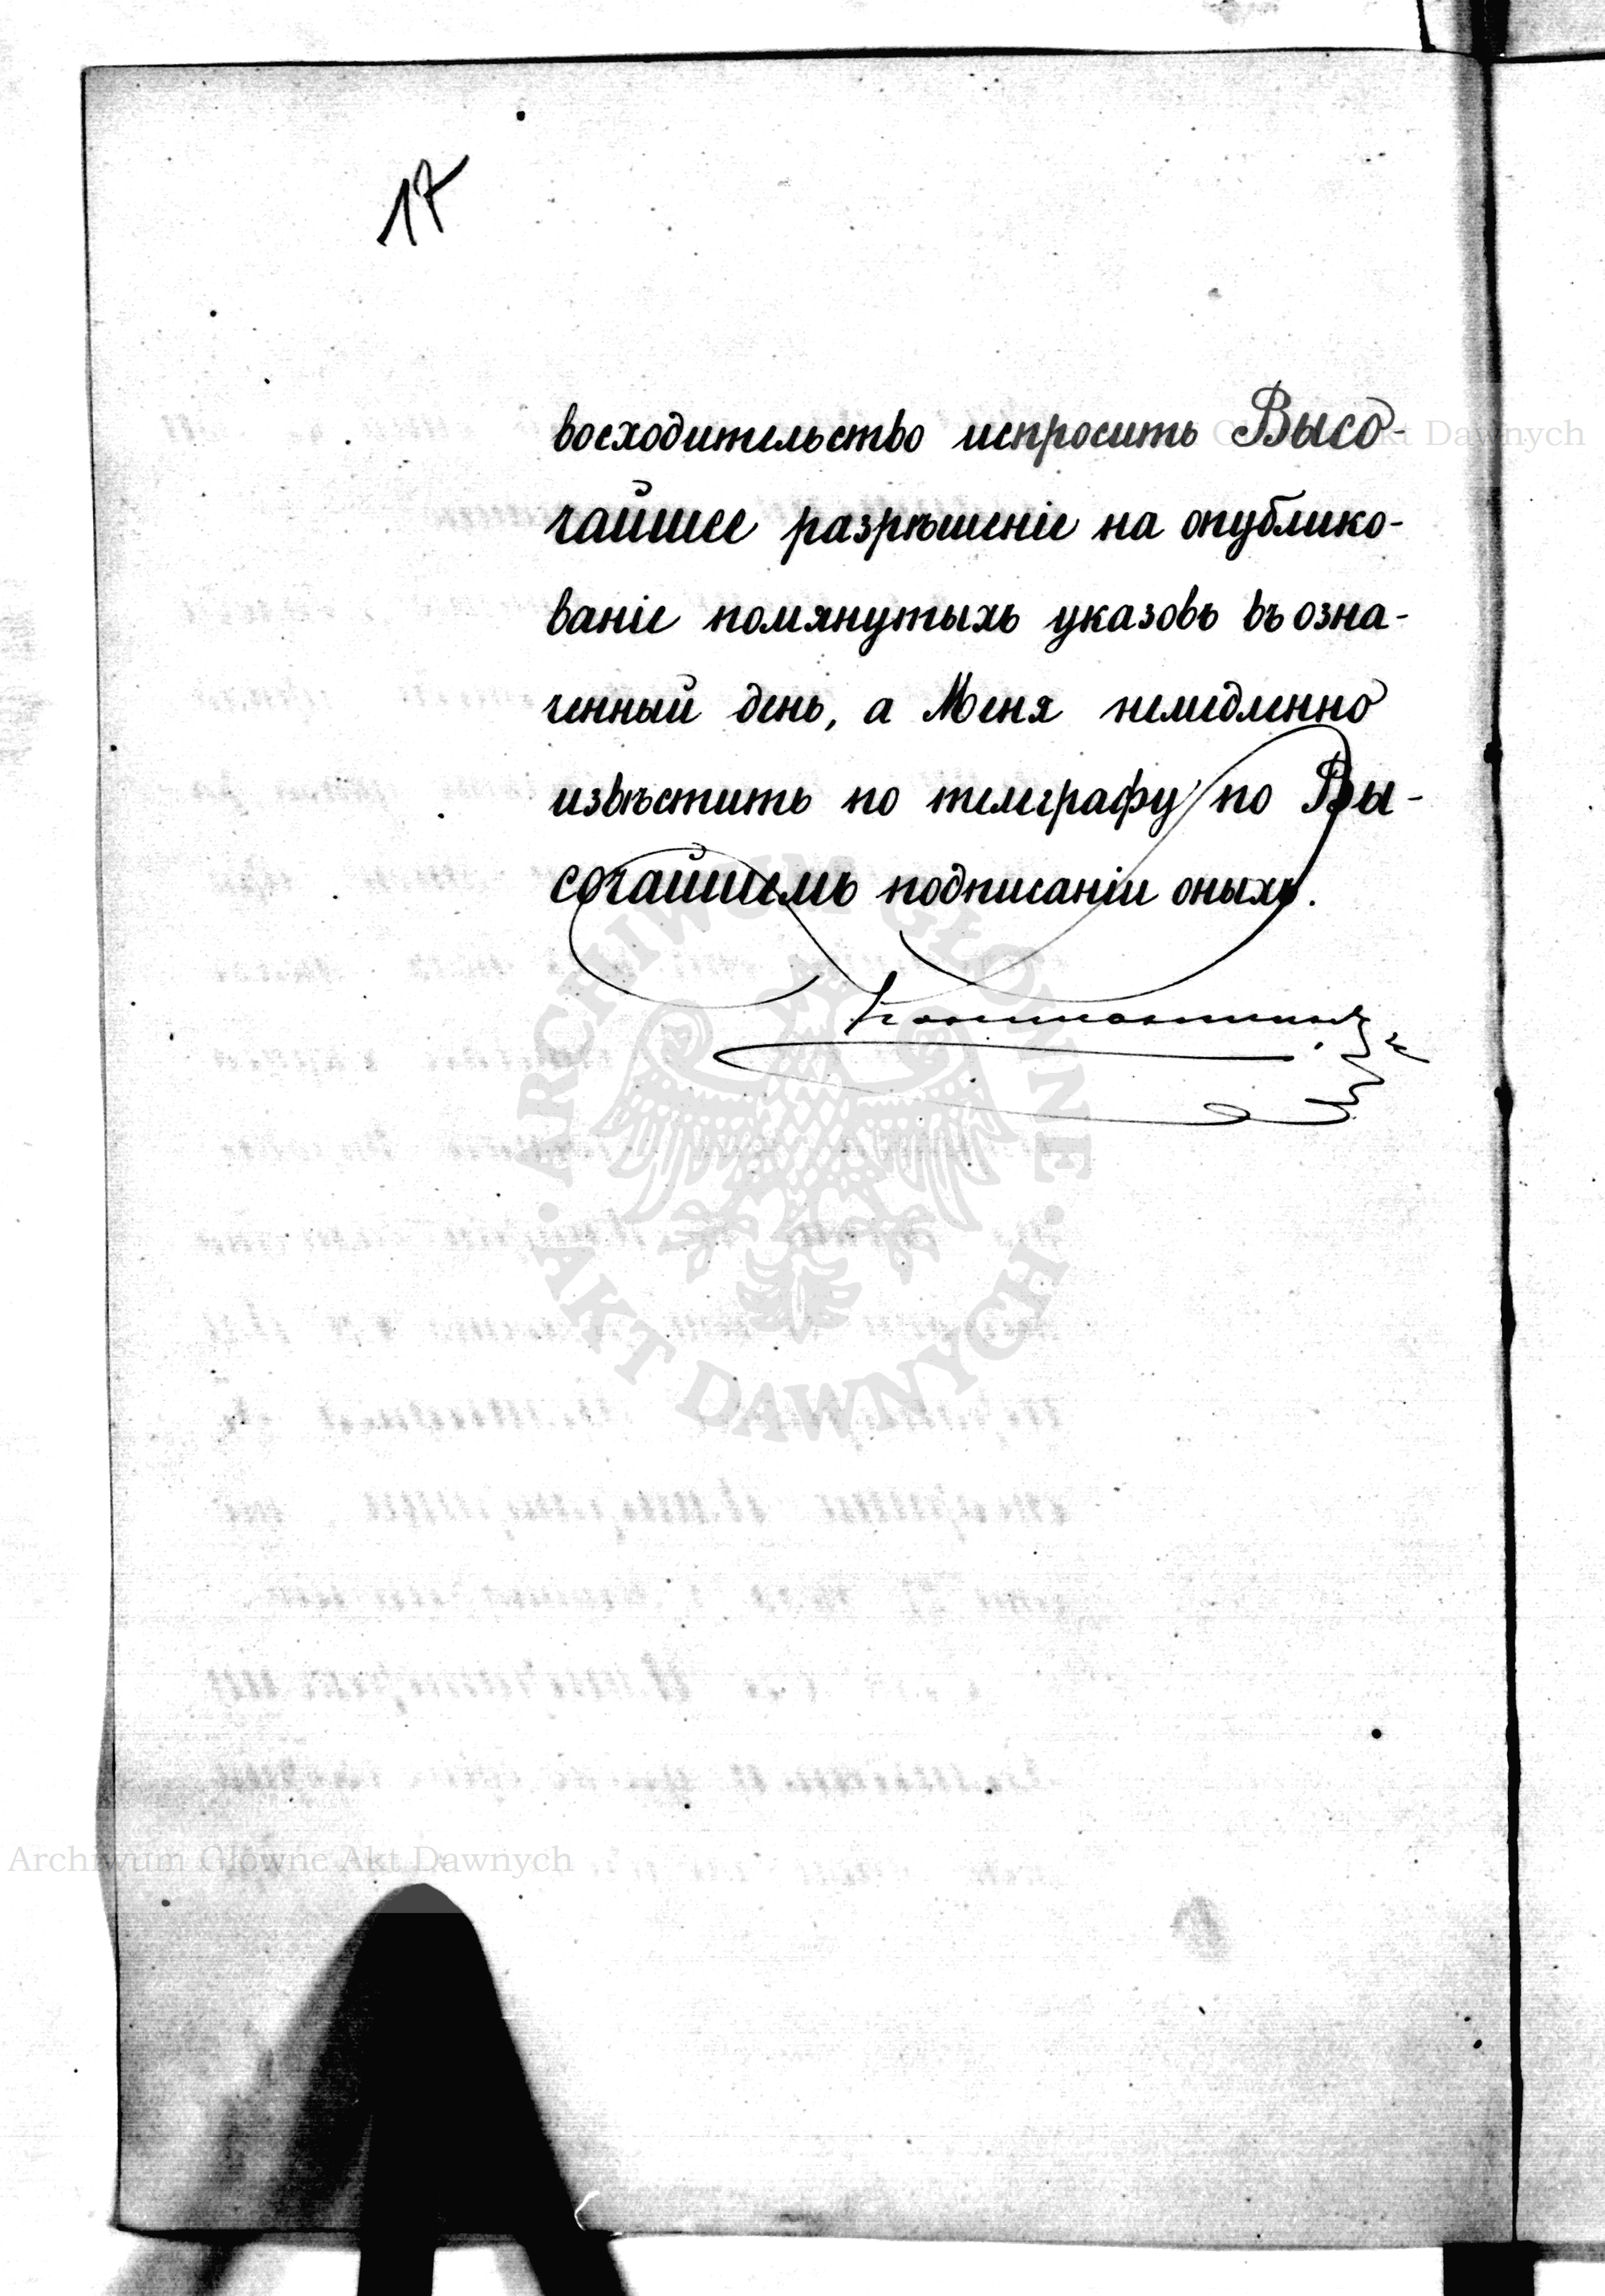 17
восходительство испросить Высо-
чайшее разрѣшеніе на опублико-
ваніе помянутыхъ указовъ въ озна-
ченный день, а Меня немедленно
извѣстить по телеграфу по Вы-
сочайшемъ подписаніи оныхъ.
Константинъ
Archiwum Główne Akt Dawnych
ARCHIWUM GŁÓWNE
AKT DAWNYCH
Archiwum Główne Akt Dawnych